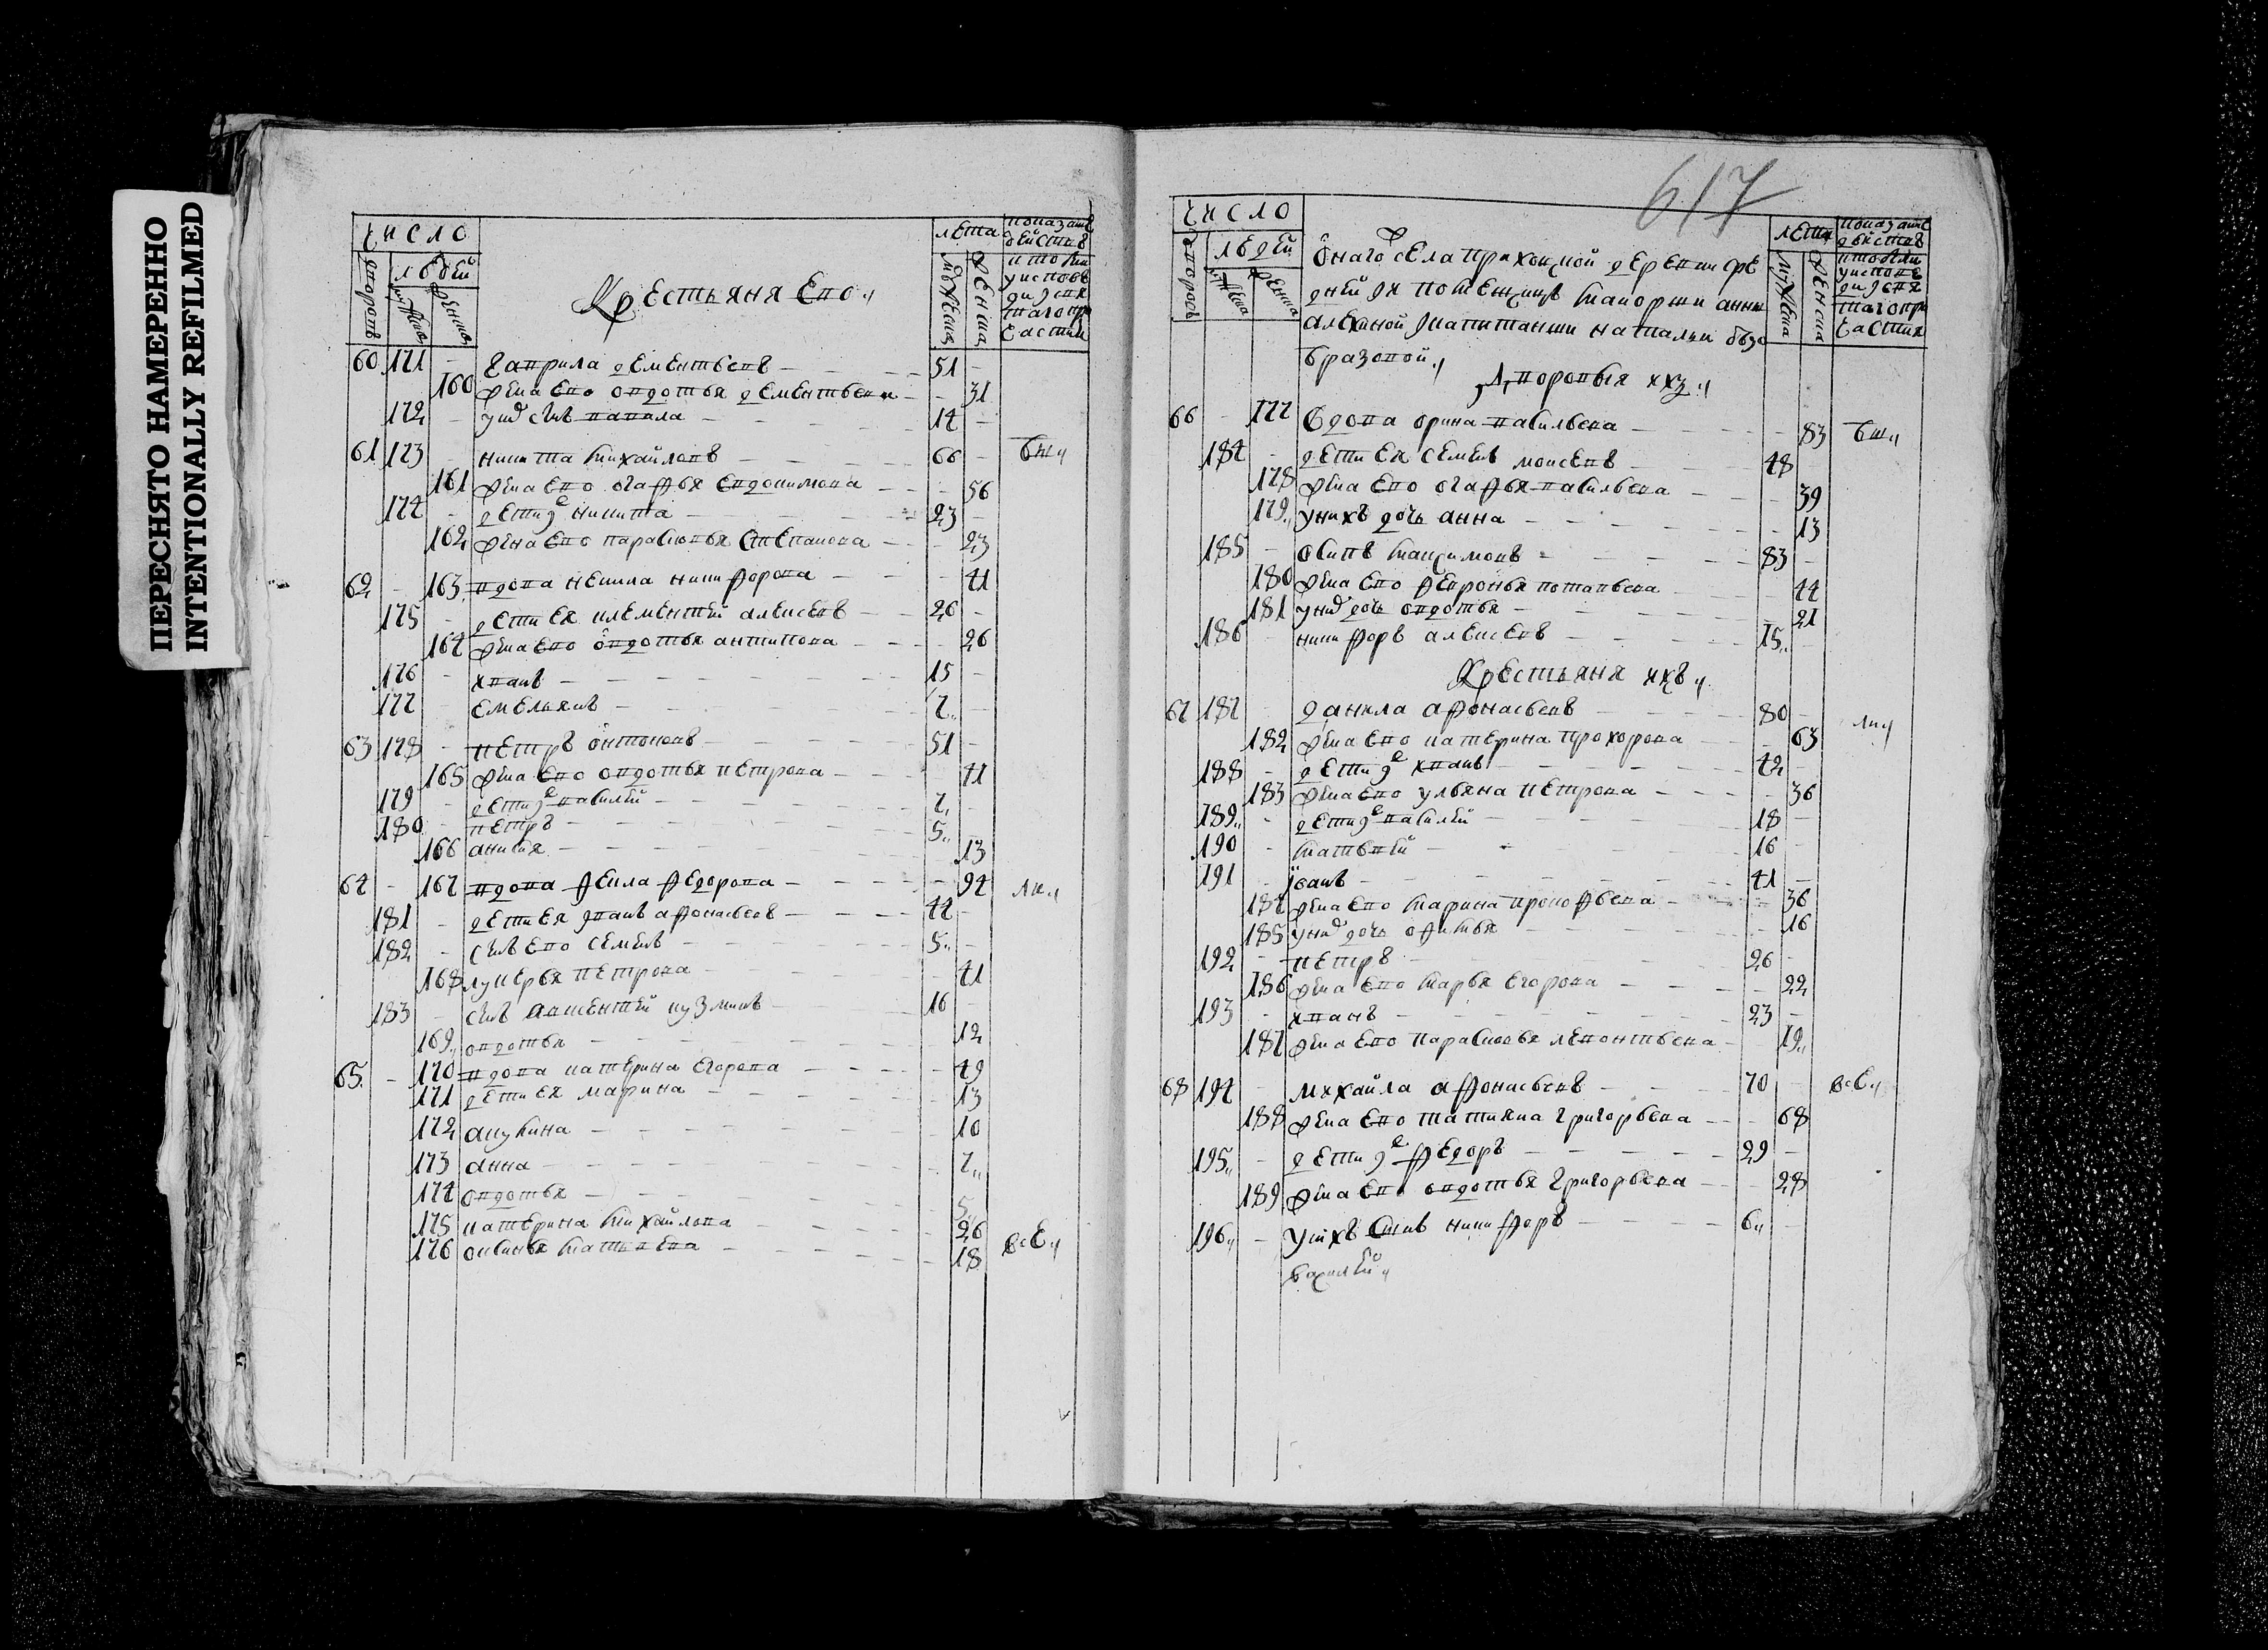 ПЕРЕСНЯТО НАМЕРЕННО
INTENTIONALLY REFILMED
617
число
людей
дворовъ
мужеска
женска
Крестьяня ево
лѣта
мужеска
женска
60 171 гаврила дементьевъ 51
160 жена ево овдотья дементьева 31
172 унихъ снъ вавила 14
61 173 никита михайловъ 66
161 жена ево огафья евдокимова 56
174 дети никита 23
162 жена ево парасковья степанова 23
62 163 вдова ненила никифорова 41
175 дети ея климентей алексеевъ 26
164 жена ево овдотья антипова 26
176 иванъ 15
177 емельянъ 7
63 178 петръ онтоновъ 51
165 жена ево овдотья петрова 41
179 дети василей 7
180 петръ 5
166 анисья 13
64 167 вдова фекла федорова 94
181 дети ея иванъ афонасьевъ 44
182 снъ ево семенъ 5
168 лукерья петрова 41
183 снъ авксентей кузминъ 16
169 овдотья 12
65 170 вдова катерина егорова 49
171 дети ея марина 13
172 акулина 10
173 анна 7
174 овдотья 5
175 катерина михайлова 26
176 оксинья матвеева 18
число
людей
дворовъ
мужеска
женска
лѣта
мужеска
женска
онаго села приходной деревни
помещицъ маиорши анны
и капитанши натальи
дворовыя ихъ
66 177 вдова орина васильева 83
184 дети ея семенъ моисеевъ 48
178 жена ево огафья васильева 39
179 унихъ дочь анна 13
185 осипъ максимовъ 83
180 жена ево февронья потапьева 44
181 унихъ дочь овдотья 21
186 никифоръ алексеевъ 15
Крестьяня ихъ
67 187 данила афонасьевъ 80
182 жена ево катерина прохорова 63
188 дети иванъ 42
183 жена ево ульяна петрова 36
189 дети василей 18
190 матвей 16
191 иванъ 41
184 жена ево марина прокофьева 36
185 унихъ дочь офимья 16
192 петръ 26
186 жена ево марья егорова 22
193 иванъ 23
187 жена ево парасковья леонтьева 19
68 194 михайла афонасьевъ 70
188 жена ево татияна григорьева 68
195 дети федоръ 29
189 жена ево овдотья григорьева 28
196 унихъ снъ никифоръ 6
василей